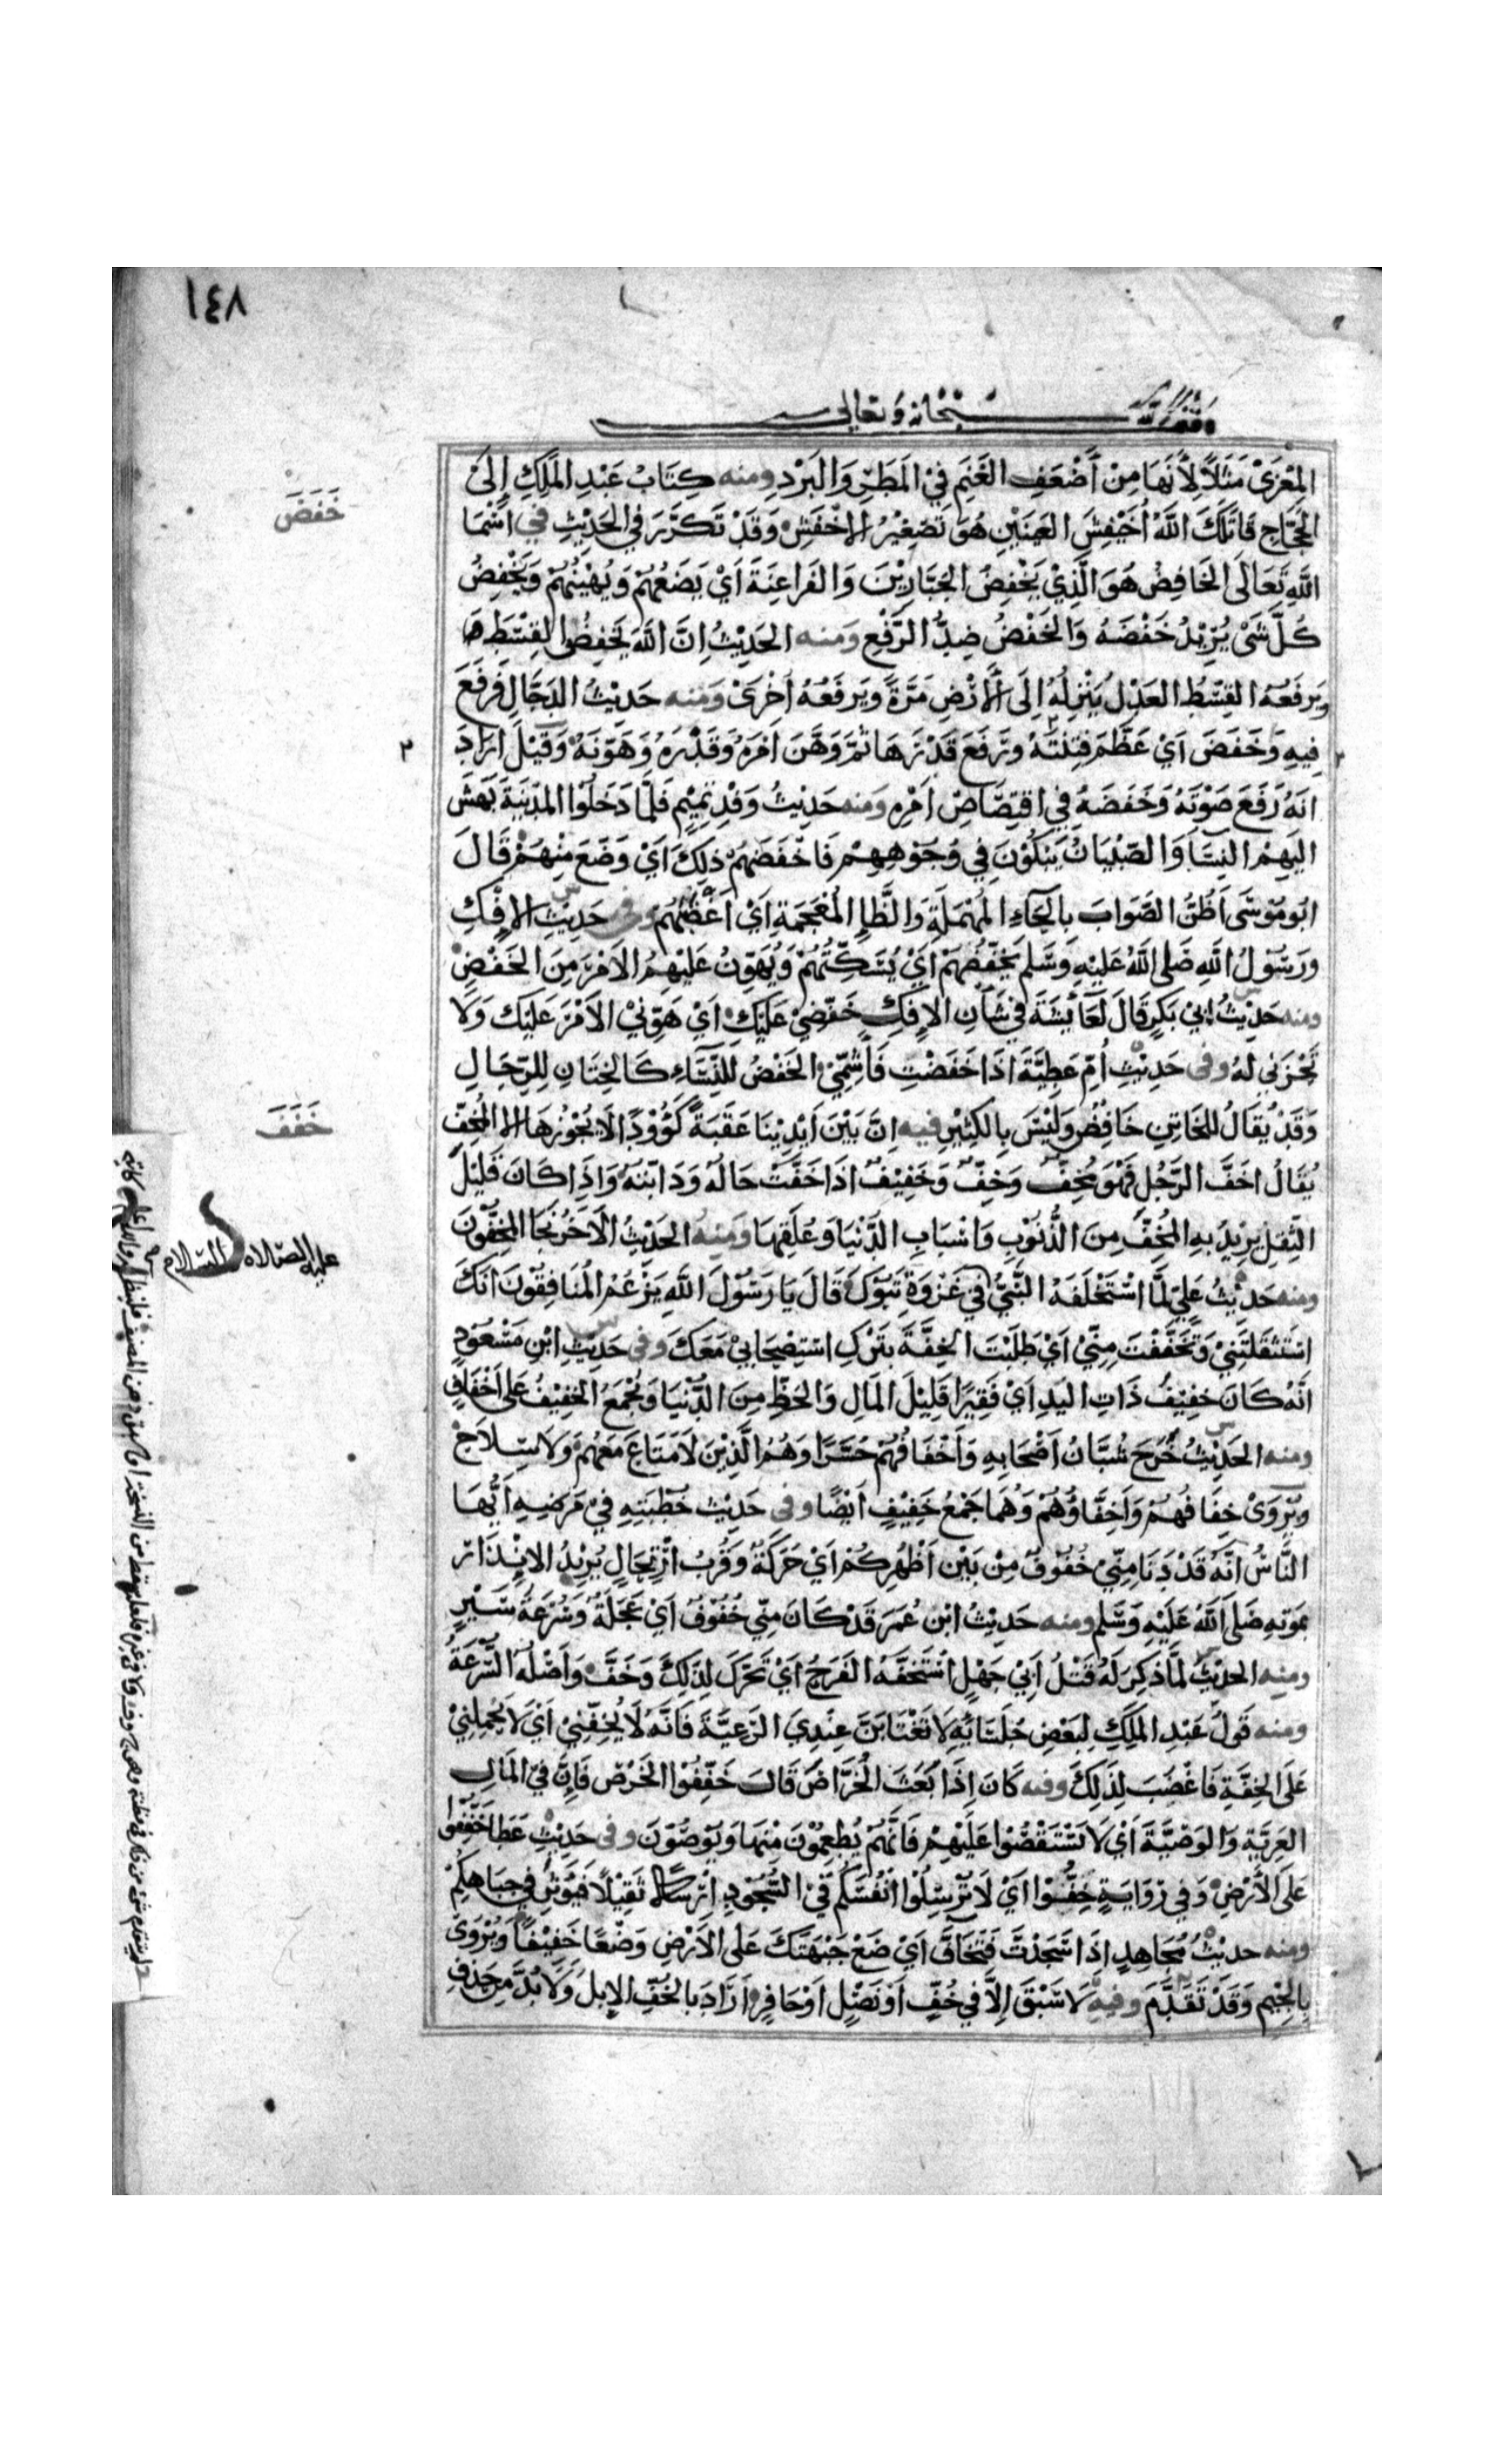 ١٤٨
وقف لله سبحانه وتعالى
المِعْزَىْ مَثَلاً لِأَنَّهَا مِنْ أَضْعَفِ الغَنَمِ فِيْ المَطَرِ وَالبَرْدِ ومنه كِتَابُ عَبْدِ المَلِكِ إِلىَ
خَفَضَ
الحَجَّاجِ قَاتَلَكَ اللَّهُ أُخَيْفِشَ العَيْنَيْنِ هُوَ تَصْغِيْرُ الاخْفَشِ وَقَدْ تَكَرَّرَ في الحَدِيْثِ في اَسْمَا
اللَّهِ تَعَالَى الخَافِضُ هُوَ الَّذِيْ يَخْفِضُ الجَبَّارِيْنَ وَالفَرَاعِنَةَ اَيْ يَضَعُهُمْ وَيُهِيْنُهُمْ وَيَخْفِضُ
كُلَّ شَىْ يُرِيْدُ خَفْضَهُ وَالخَفْضُ ضِدُّ الرَّفْعِ وَمنه الحَدِيْثُ اِنَّ اللَّهَ يَخْفِضُ القِسْطَ
وَيَرفَعُهُ القِسْطُ العَدْلُ يُنْزِلُهُ اِلَى الأَرْضِ مَرَّةً وَيَرفَعُهُ اُخْرَىْ وَمنه حَدِيْثُ الدَجَّالِ فَرَفَعَ
فِيهِ وَخَفَضَ اَيْ عَظَّمَ فِتْنَتَهُ وَرَفَعَ قَدْرَهَا ثُمَّ وَهَّنَ اَمْرَهُ وَقَدْرَهُ وَهَوَّنَهُ وَقِيْلَ اَرَادَ
انَهُ رَفَعَ صَوْتَهُ وَخَفَضَهُ فِي اقتِصَاصِ اَمْرِهِ وَمنه حَدِيْثُ وَفْدِ تَمِيْمٍ فَلَمَّا دَخَلُوْا المَدِيْنَةَ بَهَشَ
اليَهِمْ النِسَاُ وَالصِّبْيَانُ يَبْكُوْنَ فِي وُجُوْهِهِمْ فَاخْفَضَهُمْ ذلِكَ اَيْ وَضَعَ مِنْهُمْ قَالَ
ابُو مُوْسَى اَظُنُّ الصَّوَابَ بالحَاءِ المُهْمَلَةِ وَالظَّاءِ المُعْجَمَةِ اَيْ اَغْضَبَهُم وفى حَدِيْثِ الافْكِ
وَرَسُوْلُ اللَّهِ صَلى اللَّهُ عَلَيْهِ وَسَلم يُخَفِّضُهُمْ اَيْ يُسَكِّتُهُمْ وَيُهَوِّنُ عَلَيْهِمُ الاَمْرَ مِنَ الخَفْضِ
ومنه حَدِيْثُ ابِيْ بَكْرٍ قَالَ لعَايِشَةَ فيْ شَأنِ الافْكِ خَفِّضِيْ عَلَيْكِ اَيْ هَوِّنيْ الاَمْرَ عَلَيْكِ وَلَا
تَحْزَنى لهُ وفى حَدِيْثِ اُمِّ عَطِيَّةَ اذَا خَفَضْتِ فَاَشِمِّيْ الخَفْضُ للنِّسَاءِ كَالخِتَانِ لِلرِّجَالِ
خَفَفَ
وَقَدْ يُقَالُ للخَاتِنِ خَافِضٌ وَلَيْسَ بِالكَثِيْرِ فيه اِنَّ بَيْنَ اَيْدِيْنَا عَقَبَةً كَؤُوْدًا لَا يَجُوْزُهَا الا المُخِفُّ
يُقَالُ اخَفَّ الرَّجُلُ فَهْوَ مُخِفٌّ وَخِفٌّ وَخَفِيْفٌ اذَا خَفَّتْ حَالُهُ وَدَابَتُهُ وَاذَا كَانَ قَلِيْلَ
الثِّقلِ يرِيْدُ بِهِ المُخِفَّ مِنَ الذُّنُوْبِ وَاسْبَابِ الدُّنْيَا وَعُلَقِهَا وَمنهُ الحَدِيْثُ الآخَرُ نجَا المُخِفُّوْنَ
ومنه حَدِيْثُ عَليٍّ لمَّا اسْتَخْلَفَهُ النَّبيُّ فِي غَزْوَةِ تَبُوْكَ قَالَ يَا رَسُوْلَ اللَّهِ يَزْعُمُ المُنَافِقُوْنَ انكَ
عليه الصلاه والسلام
اسْتَثْقَلْتَنِيْ وَتَخَفَّفْتَ مِنّيْ اَيْ طَلَبْتَ الخِفَّةَ بِتَرْكِ اسْتِصْحَابِيْ مَعَكَ وفى حَدِيْثِ ابْنِ مَسْعُوْدٍ
انّهُ كَانَ خفِيْفَ ذَاتِ اليَدِ اَيْ فَقِيْرًا قَلِيْلَ المَالِ وَالحَظِّ مِنَ الدُّنْيَا وَيُجْمَعُ الخَفِيْفُ عَلى اَخْفَافٍ
ومنه الحَدِيْثُ خَرَجَ شُبَّانُ اَصْحَابِهِ وَاَخْفَافُهُمْ حُسَّرًا وَهُمُ الَّذِيْنَ لَا مَتَاعَ مَعَهُمْ وَلَا سِلَاحَ
وَيُرْوَىْ خِفَافُهُمْ وَاَخِفَّاؤُهُمْ وَهُمَا جَمْعُ خَفِيْفٍ اَيْضًا وفى حَدِيْثِ خُطْبَتِهِ فيْ مَرَضِهِ اَيُّهَا
النَّاسُ انّهُ قَدْ دَنَا مِنِّيْ خُفُوْفٌ مِنْ بَيْنِ اَظْهُرِكُمْ اَيْ حَرَكَةٌ وَقُرْبُ ارْتِحَالٍ يُرِيْدُ الانْذَارَ
بمَوْتِهِ صَلَى اللَّهُ عَلَيْهِ وَسَلم ومنه حَدِيْثُ ابْنِ عُمَرَ قَدْ كَانَ مِنِّي خُفُوْفٌ اَيْ عَجَلَةٌ وَسُرْعَةُ سَيْرٍ
ومنه الحَدِيْثُ لمَّا ذُكِرَ لَهُ قَتْلُ اَبِيْ جَهْلٍ اسْتَخَفَّهُ الفَرَحُ اَيْ تَحَرَّكَ لِذلِكَ وَخَفَّ وَاَصْلُهُ السُّرْعَةُ
ومنه قَولُ عَبْدِ المَلِكِ لِبَعْضِ جُلَسَائِهِ لَا تَغْتَابَنَّ عِنْدِيَ الرَّعِيَّةَ فَانَّهُ لَا يُخِفُّنِيْ اَيْ لَا يَحْمِلُنِيْ
عَلَى الخِفَّةِ فَاغْضَبَ لِذَلِكَ وفيه كَانَ اِذَا بَعَثَ الخُرَّاصَ قَالَ خَفِّفُوْا الخَرْصَ فَاِنَّ فِيْ المَالِ
العَرِيَّةَ وَالوَصِيَّةَ اَيْ لَا تَسْتَقْصُوْا عَلَيْهِمْ فَانَّهُمْ يُطْعِمُوْنَ مِنْهَا وَيُوْصُوْنَ وفى حَدِيْثِ عَطَا خَفِّفُوْا
عَلَى الاَرْضِ وَفي رِوَايَةٍ خِفُّوْا اَيْ لَا تُرْسِلُوْا انْفُسَكُمْ فيْ السُّجُوْدِ اِرْسَالًا ثَقِيْلًا فَيُؤَثِّرَ فيْ جِبَاهِكُمْ
ومنه حدِيْثُ مُجَاهِدٍ اِذَا سَجَدْتَّ فَتَخَافَّ اَيْ ضَعْ جَبْهَتَكَ عَلى الاَرْضِ وَضْعًا خَفِيْفًا وَيُرْوَى
بِالجِيْمِ وَقَدْ تَقَدَّمَ وفيه لَا سَبْقَ اِلَّا في خُفٍّ اَوْ نَصْلٍ اَوْ حَافِرٍ اَرَادَ بالخُفِّ الابِلَ وَلَا بُدَّ مِنْ حَذْفِ